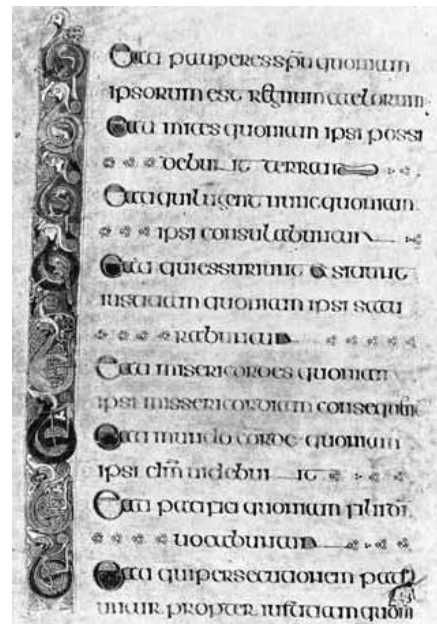 Beati pauperes spu quoniam
ipsorum est regnum caelorum
Beati mites quoniam ipsi possi
debunt terram
Beati qui lugent nunc quoniam
ipsi consulabuntur
Beati qui essuriunt & sitiunt
iustitiam quoniam ipsi satu
rabuntur
Beati misericordes quoniam
ipsi missericordiam
Beati mundo corde quoniam
ipsi dm̄ uidebunt
Beati pacifici quoniam filii dī
uocabuntur
Beati qui persecutionem pati
untur propter iustitiam quom̄